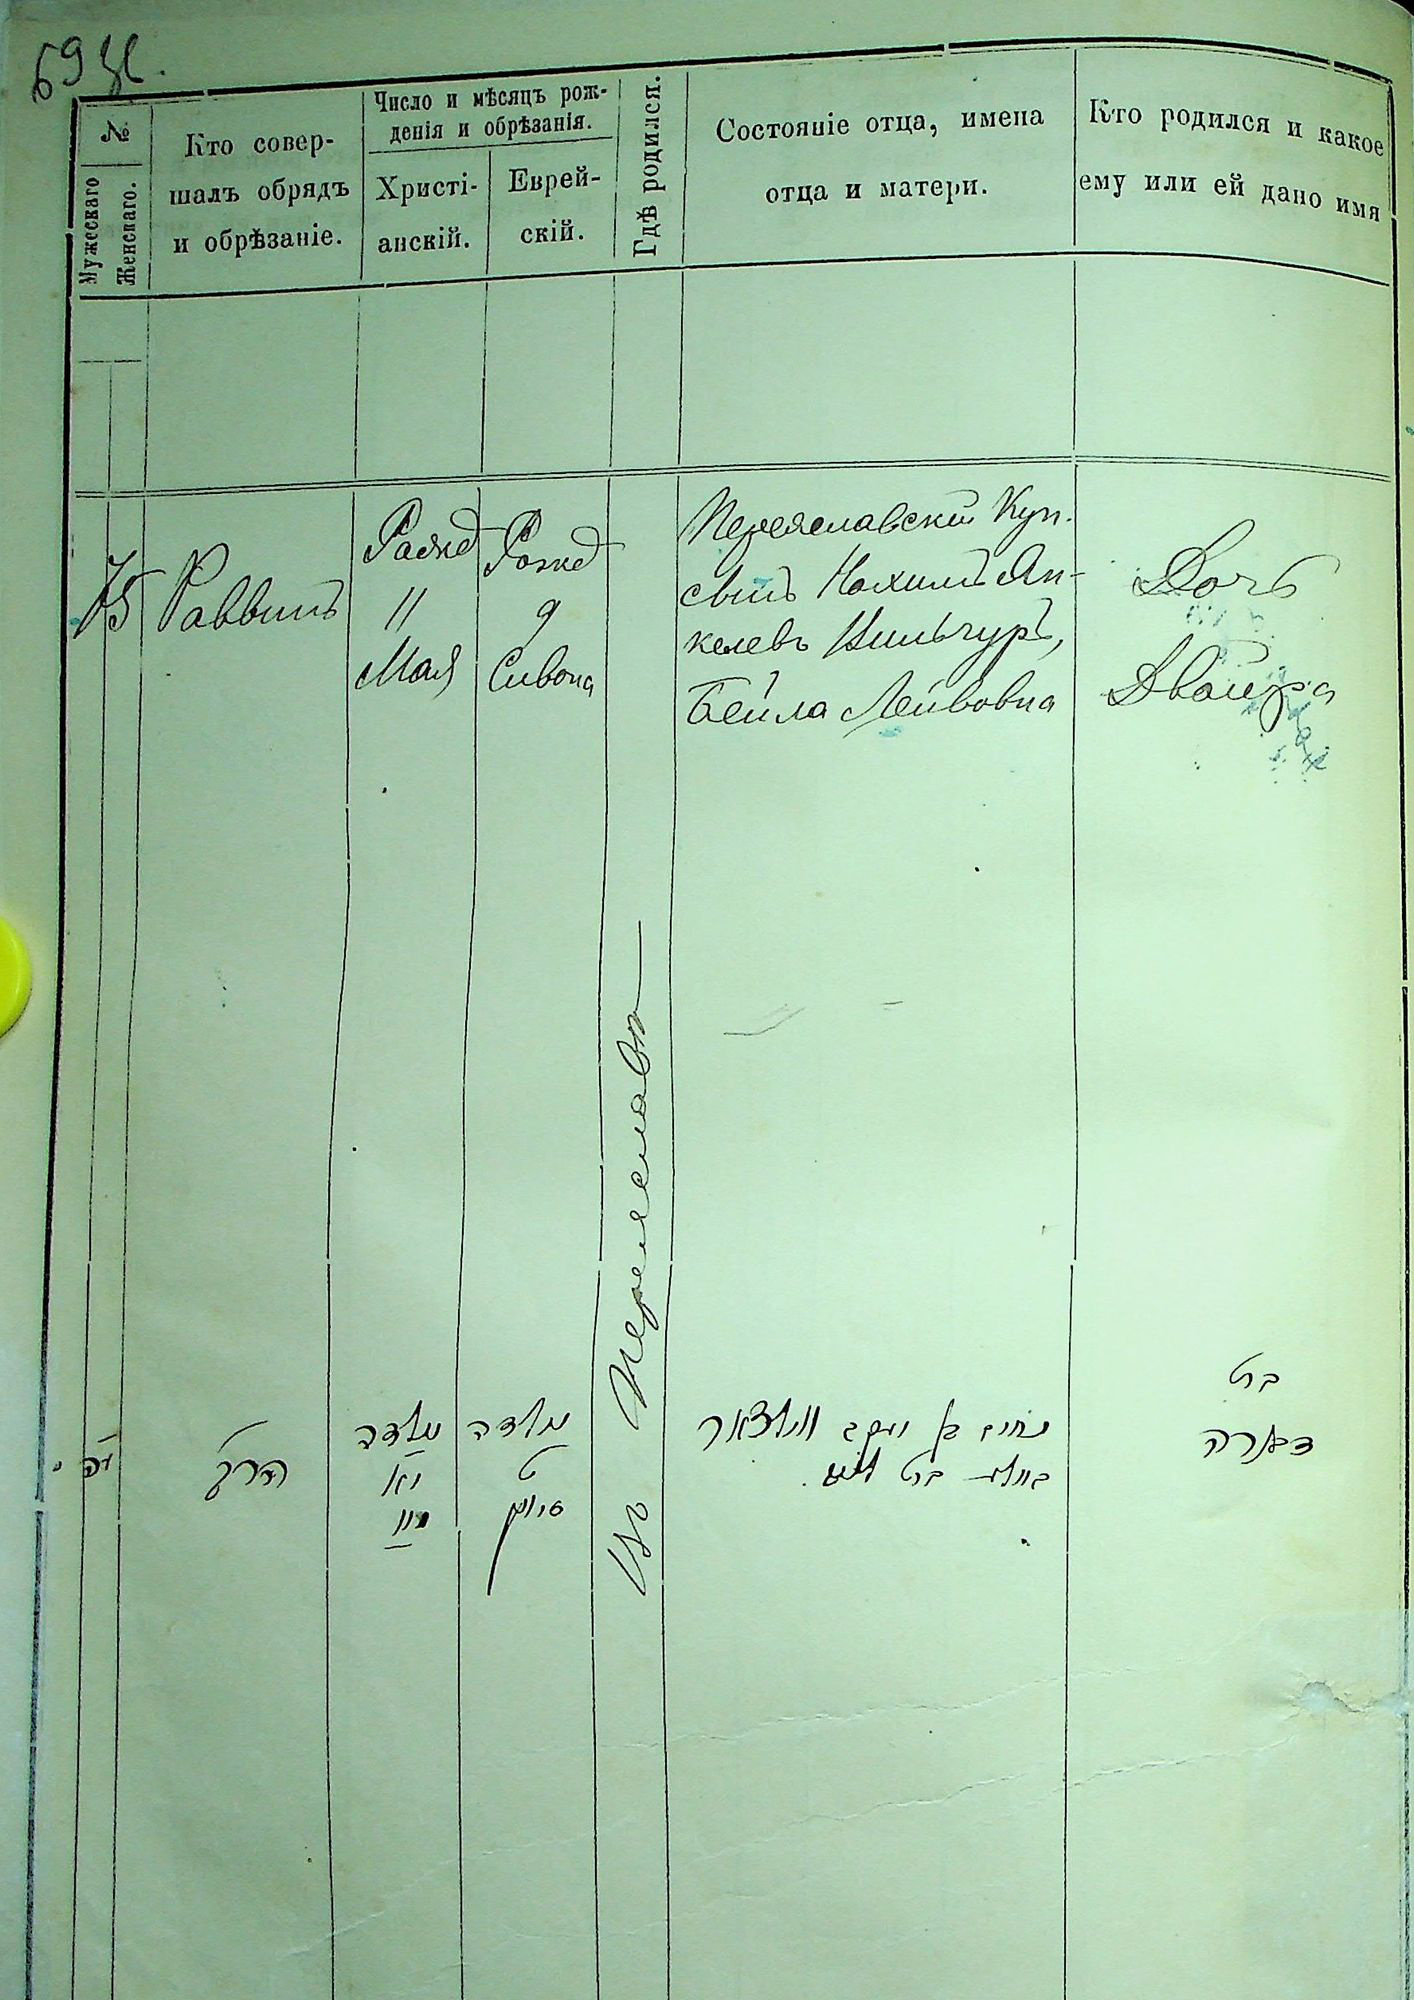 69 зв.
№
Мужескаго
Женскаго.
Кто совер-
шалъ обрядъ
и обрѣзаніе.
Число и мѣсяцъ рож-
денія и обрѣзанія.
Христі-
анскій.
Еврей-
скій.
Гдѣ родился.
Состояніе отца, имена
отца и матери.
Кто родился и какое
ему или ей дано имя
75
Раввинъ
Рожд
11
Мая
Рожд
9
Сивона
Въ Переяславѣ
Переяславскій Куп.
сынъ Нохимъ Ян-
келевъ
Бейла Лейбовна
Дочь
Двойра
הרב
נולדה
יא
מיי
נולדה
ט
סיון
נחום בן יעקב
ביילע בת ליב
בת
דבורה